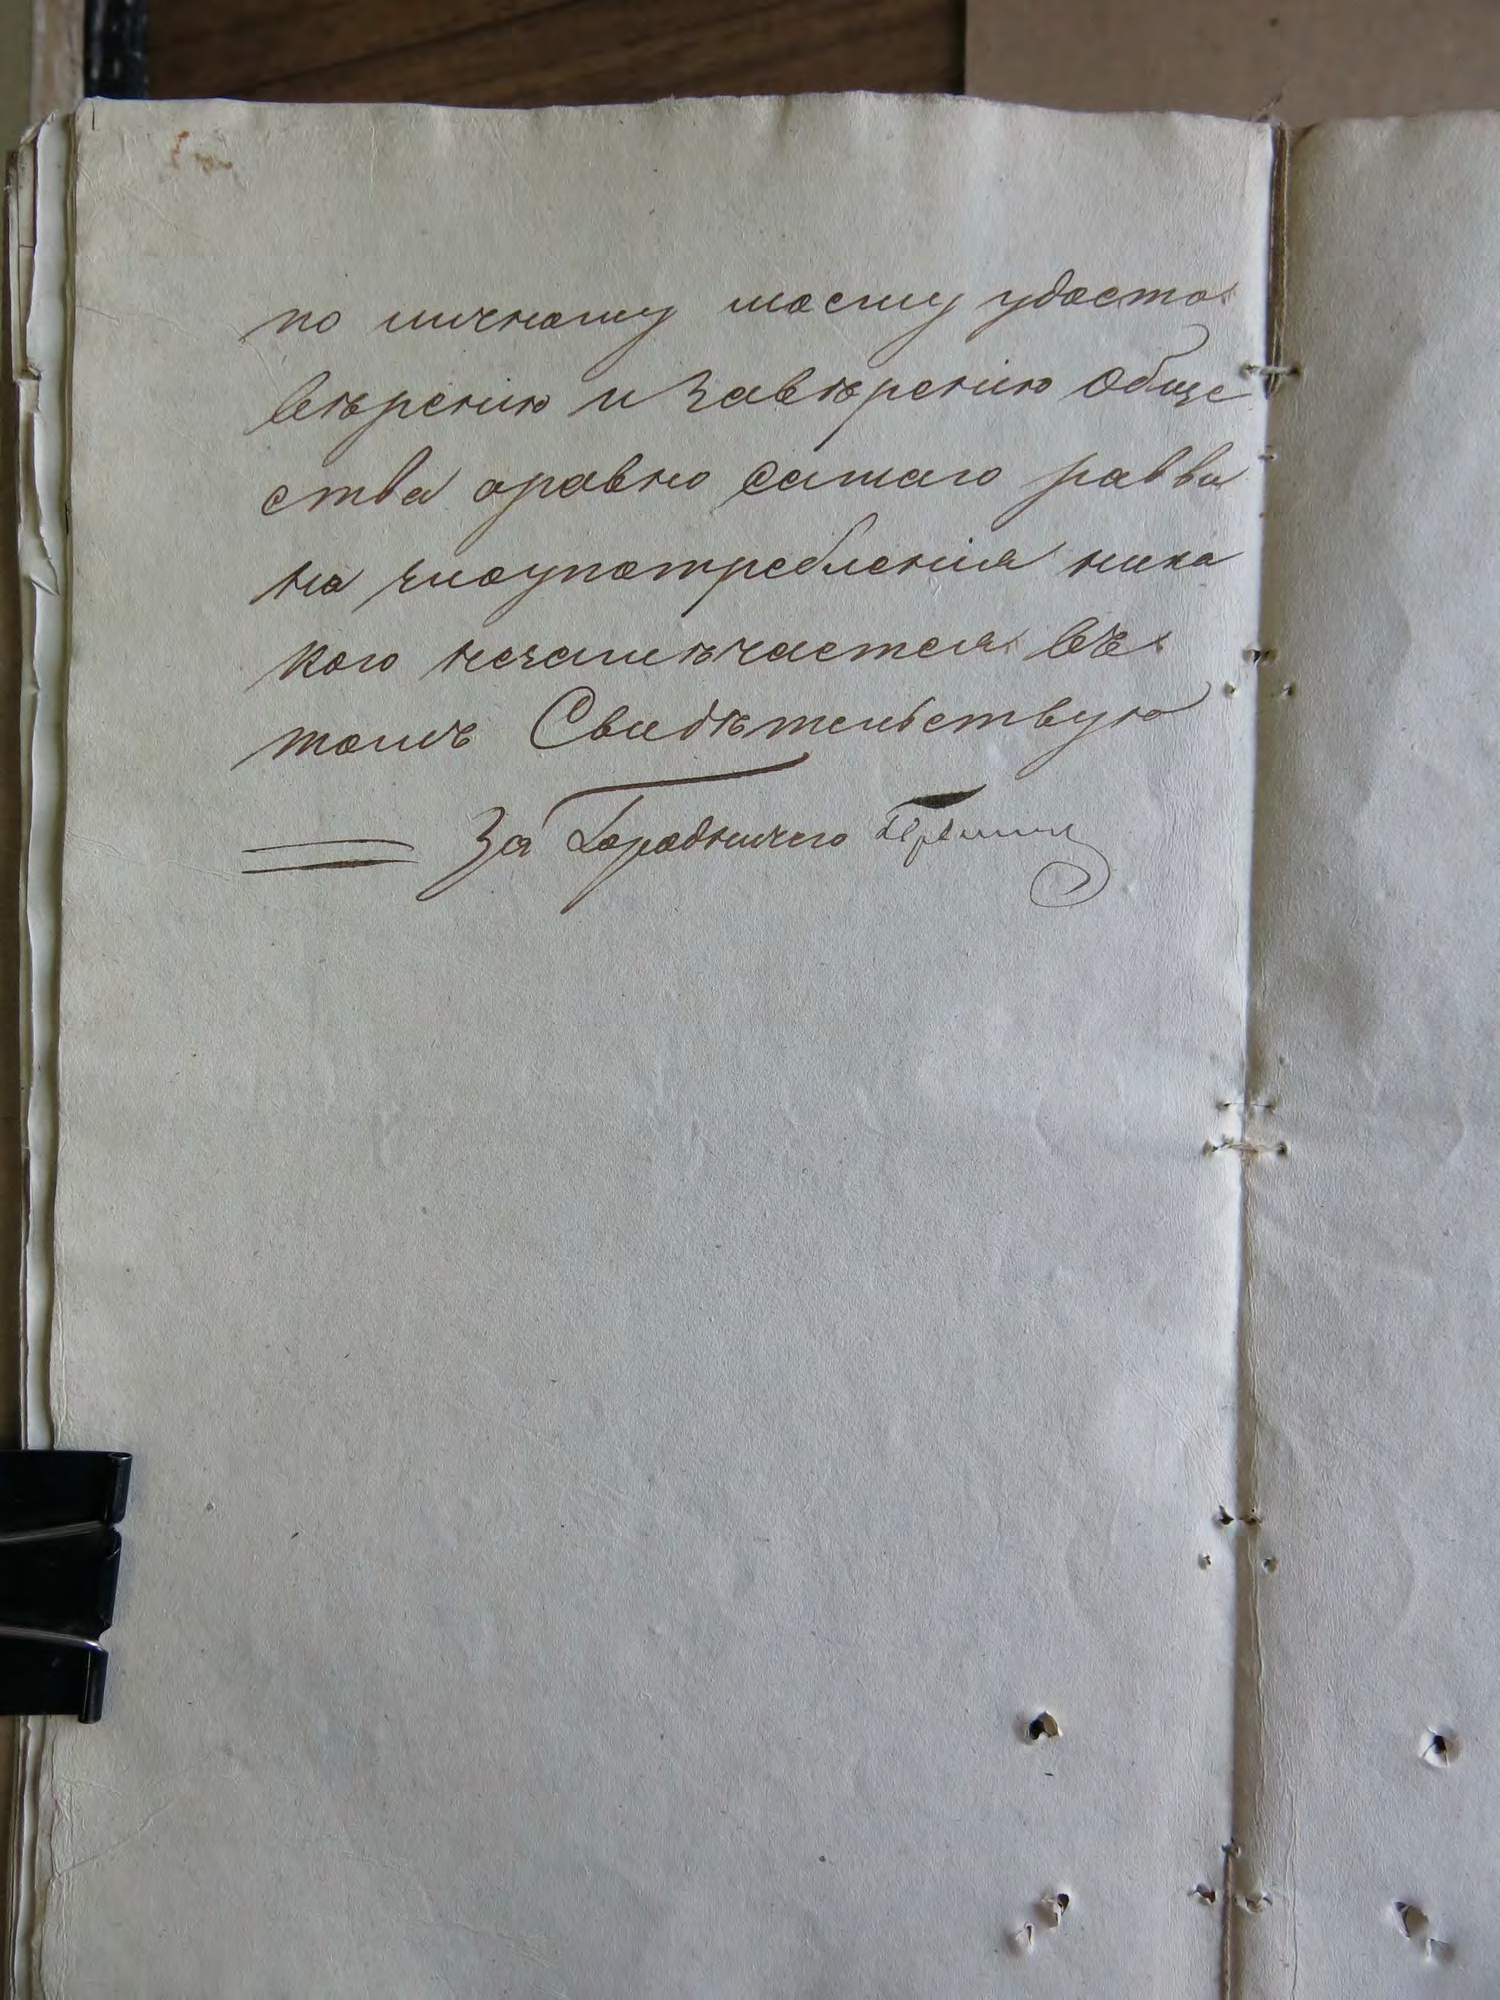 по личному моему удосто
вѣренію и завѣренію обще
ства оравно самаго равви
на злоупотребленія ника
кого незамѣчается въ
томъ Свидѣтельствую
За Городничего